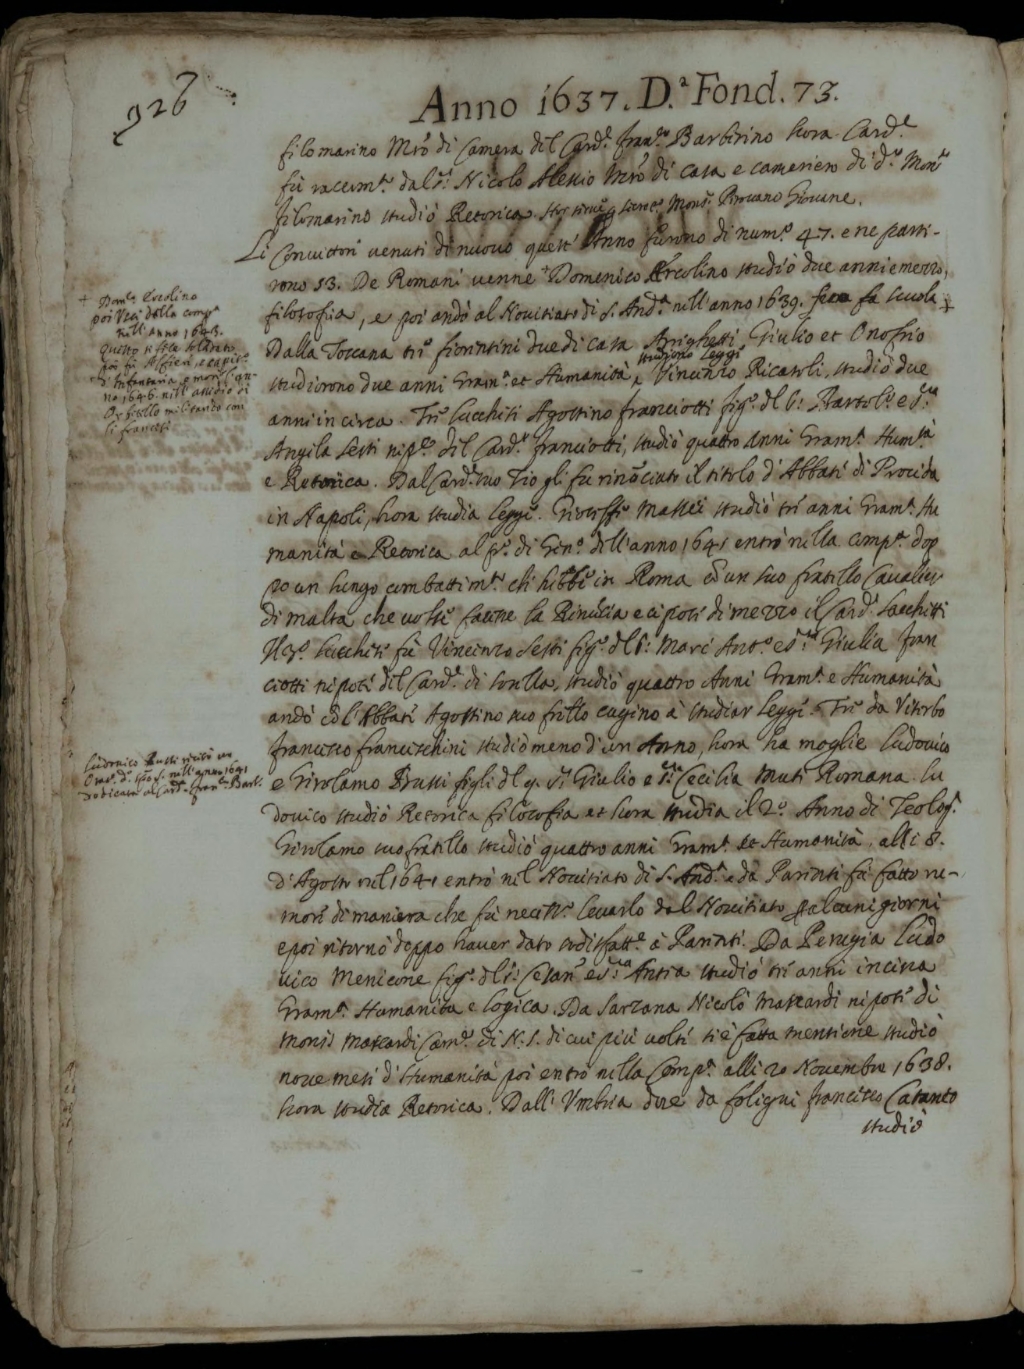 926
Anno 1637. D.ª Fond. 73.
filomarino Mrõ di Camera del Card.e Fran.co Barberino hora Card.e
fù racom.to dal S.r Nicolo Alessio Mrõ di casa e cameriero di d.o Mon.r
filomarino studiò Retorica. Mons.r Giouane.
Li Conuittori uenuti di nuouo quest' Anno furono di num.o 47. e ne parti-
rono 53. De Romani uenne + Domenico Ercolino studiò due anni e mezzo,
filosofia, e poi andò al Nouitiato di S. And.a nell'anno 1639. fa scuola +
Dalla Toscana tre fiorentini due di casa Brighetti, Giulio et Onofrio
studiorono Leggi
studiorono due anni Gram.a et Humanità, Vincenzo Ricasoli, studiò due
anni in circa. Tre Lucchesi Agostino franciotti fig.o del S.r Bartol.o e S.ra
Angela Sesti nip.te del Card.e franciotti, studiò quattro Anni Gram.a Hum.tà
e Retorica. Dal Card.e suo Tio gli fu rinõciato il titolo d'Abbate di Procida
in Napoli, hora studia leggi. Massei studiò tre anni Gram.a Hu
manità e Retorica al p.o di Gen.o dell'anno 1641 entrò nella comp.a dop
po un lungo combattim.to ch' hebbe in Roma cõ un suo fratello Caualier
di Malta che uolse farne la Rinũcia e ci pose di mezzo il Card.e Sacchetti
Il 3.o Lucchese fù Vincenzo Sesti fig.o del S.r Marc' Ant.o e S.ra Giulia Fran
ciotti nipote del Card.e di sorella, studiò quattro Anni Gram.a e Humanità
andò cõ l'Abbate Agostino suo frĩlo cugino à studiar Leggi. Tre da Viterbo
francesco franceschini studiò meno d'un Anno, hora ha moglie Ludouico
e Girolamo Brusti figli del q. S.r Giulio e S.ra Cecilia Muti Romana. Lu
douico studiò Retorica filosofia et hora studia il 2.o Anno di Teolog.a
Girolamo suo fratello studiò quattro anni Gram.a et Humanità, alli 8.
d'Agosto nel 1641 entrò nel Nouitiato di S. And.a e dà Parenti fù fatto ru-
more di maniera che fù necess.o leuarlo dal Nouitiato p alcuni giorni
e poi ritornò doppo hauer dato sodisfatt.e à Parenti. Da Perugia Ludo
uico Menicone fig.o del S.r Cesare e S.ra Antia studiò tre anni incirca
Gram.a Humanità e Logica. Da Sarzana Nicolò Mascardi nipote di
Mons.r Mascardi Cam.o di N. S. di cui più uolte si è fatta mentione studiò
noue mesi d'Humanità poi entrò nella Comp.a alli 20 Nouembre 1638.
hora studia Retorica. Dall' Vmbria due da foligni francesco Catanto
studiò
+ Dom.co Ercolino
poi Uscì della comp.a
nell'anno 1643.
questo si fece soldato
poi fù Alfiere e capit.o
d'Infanteria e morse l'an-
no 1646. nell'assedio di
Orbetello militando con
li francesi
Ludouico Brusti recitò un
Oraz.e d. Sp.o S. nell'anno 1641
dedicata al Card. Fran.co Barb.